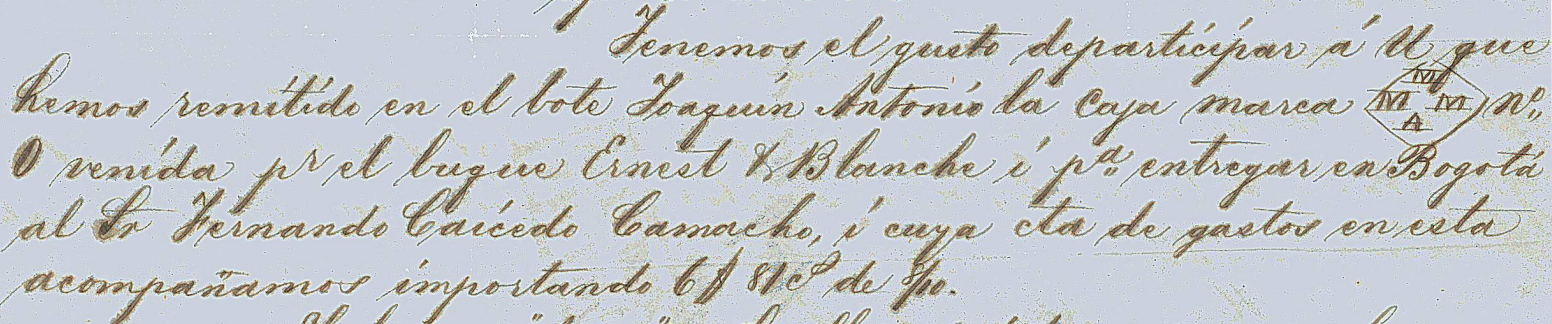 Tenemos el gusto departicipar á U que
hemos remitido en el bote Joaquin Antonio la Caja marca M M M A nº
O venida pr el buque Ernest & Blanche i pª entregar en Bogotá
al Sr Fernando Caicedo Camacho, i cuya cta de gastos en esta
acompañamos importando 6$ 81cs de 8/10.